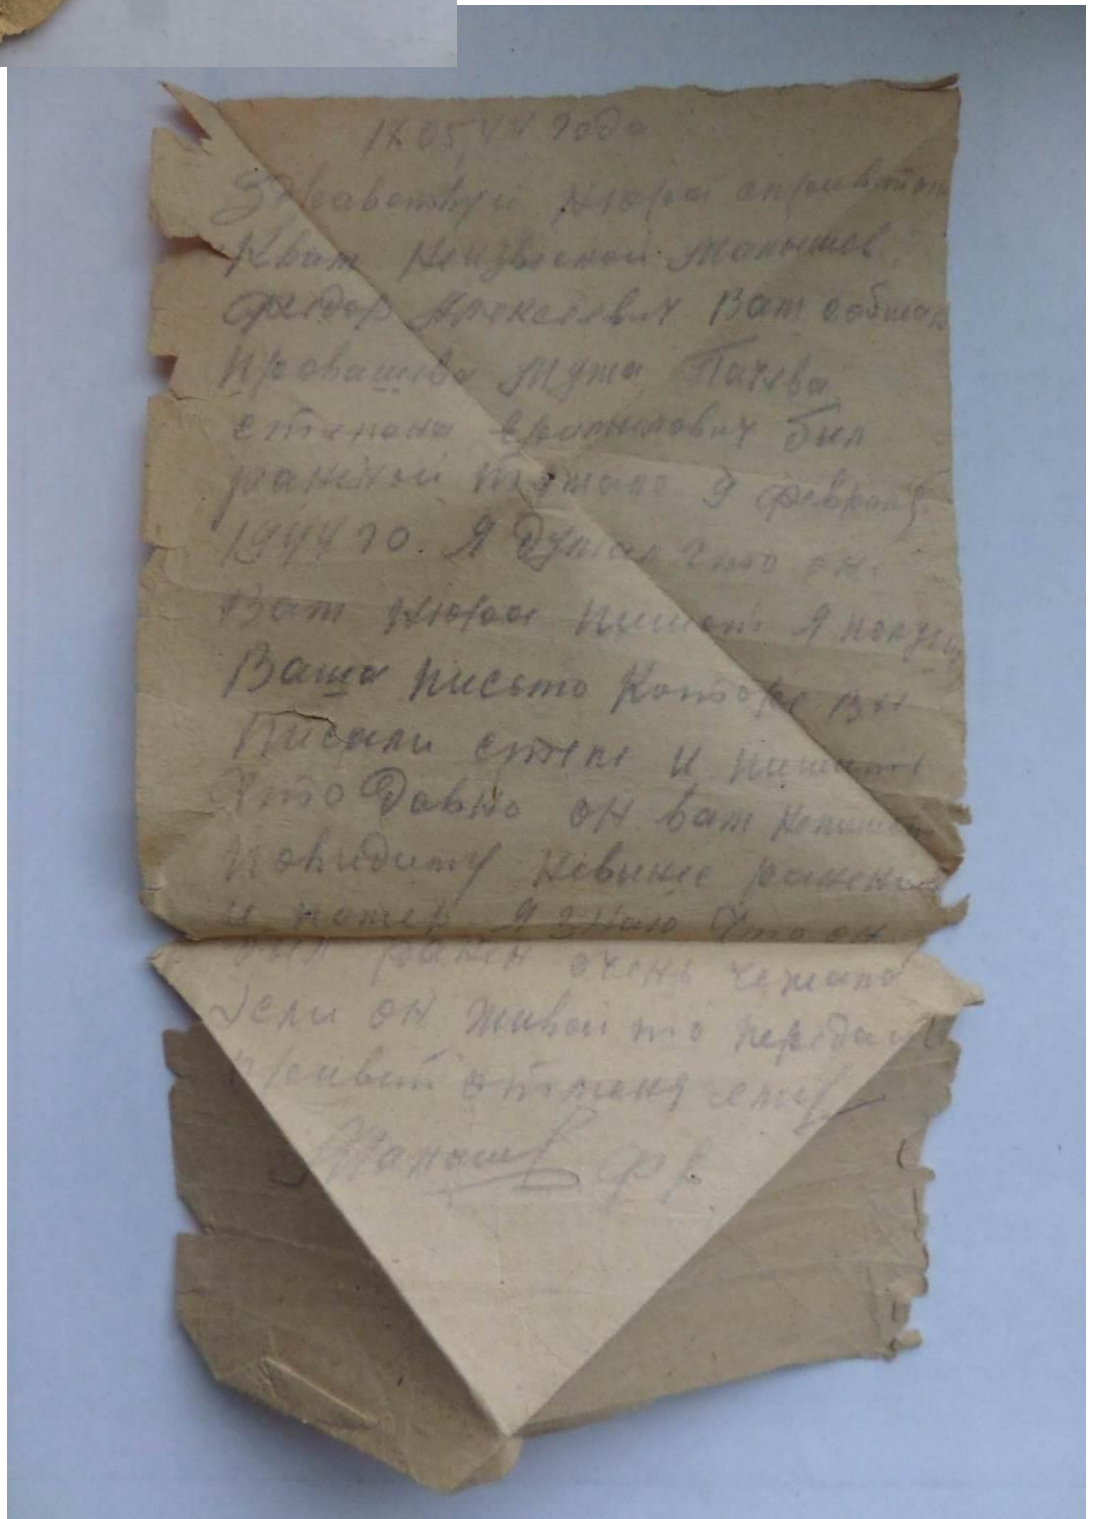 05 44 года
Здравствуй Нюра сприветом
Квам Неизвесной Малышев
Федор Алексеевич Вам собшаю
мужа
степана был
раненой 9 февраля
1944 го. Я думал что он.
Вам Нюра пишет Я получил
Ваша письмо Которе вы
Писали степе и пишите
Что Давно он вам непишет
повидиму невынес ранения
и помер. Я знаю Что он
был ранен очень чежало
Если он живой то передай
привет отменя ему
Малышев Ф